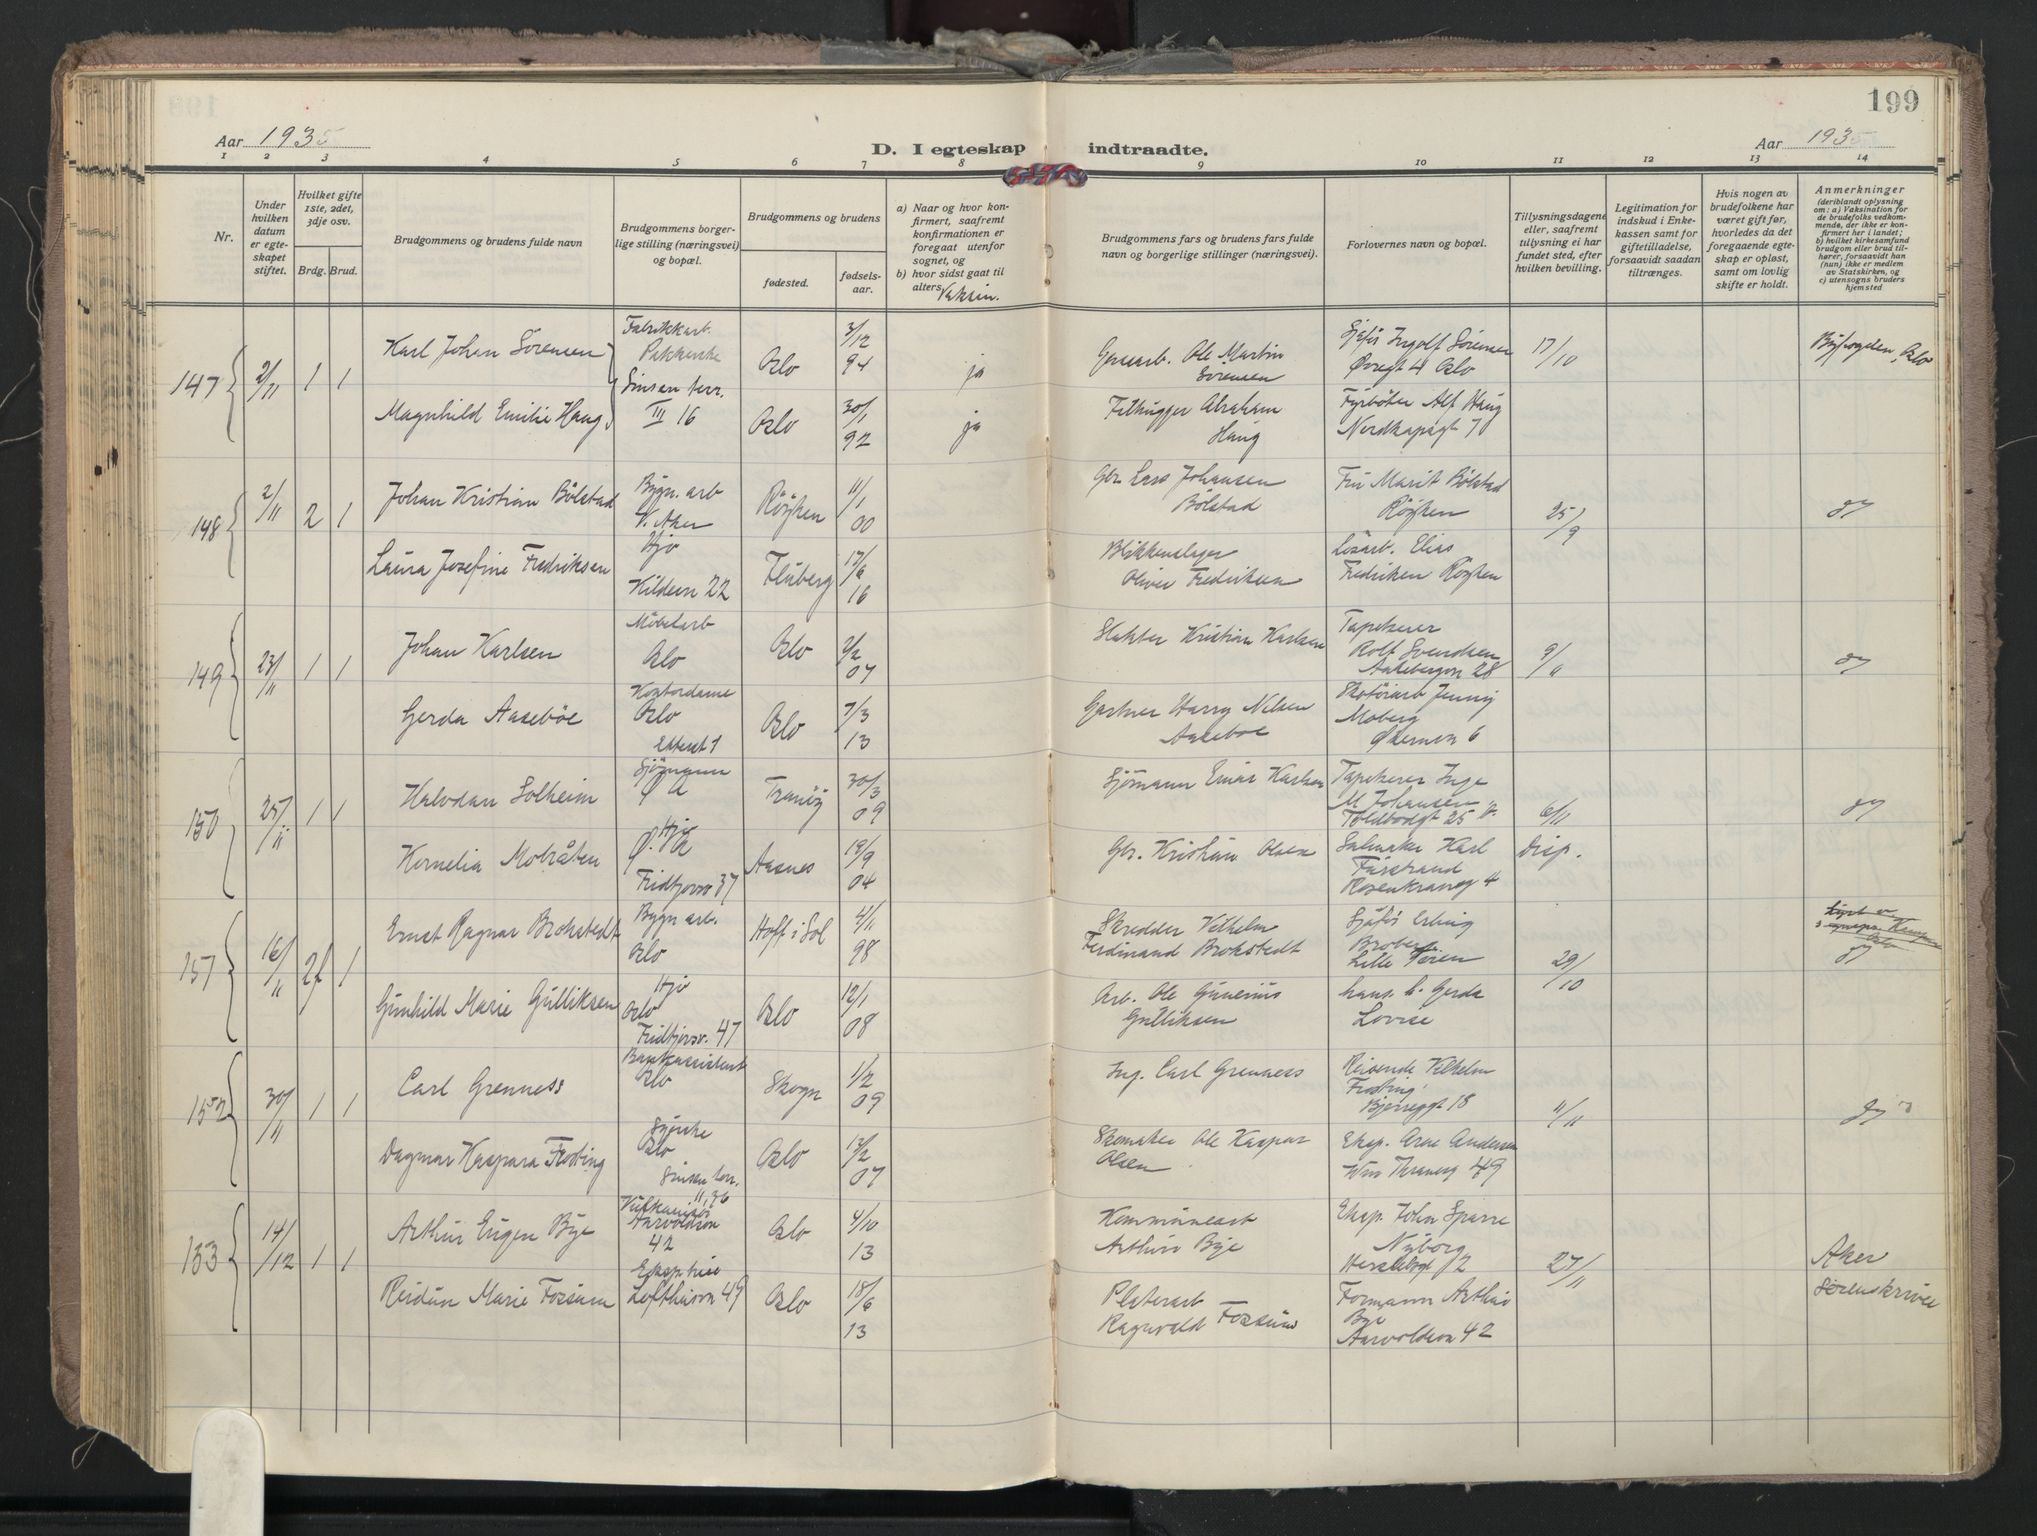 199
Aar 1935
D. I egteskap indtraadte.
Aar 1935
1 2 3 4 5 6 7 8 9 10 11 12 13 14
Nr.
Under hvilken datum er egteskapet stiftet.
Hvilket gifte 1ste, 2det, 3dje osv.
Brdg. Brud.
Brudgommens og brudens fulde navn
Brudgommens borgerlige stilling (næringsvei) og bopæl.
Brudgommens og brudens
fødested.
fødselsaar.
a) Naar og hvor konfirmert, saafremt konfirmationen er foregaat utenfor sognet, og
b) hvor sidst gaat til alters
Vaksin.
Brudgommens fars og brudens fars fulde navn og borgerlige stillinger (næringsvei).
Forlovernes navn og bopæl.
Tillysningsdagene eller, saafremt tillysning ei har fundet sted, efter hvilken bevilling.
Legitimation for indskud i Enkekassen samt for giftetilladelse, forsaavidt saadan tiltrænges.
Hvis nogen av brudefolkene har været gift før, hvorledes da det foregaaende egteskap er opløst, samt om lovlig skifte er holdt.
Anmerkninger
(deriblandt oplysning om: a) Vaksination for de brudefolks vedkommende, der ikke er konfirmert her i landet; b) hvilket kirkesamfund brudgom eller brud tilhører, forsaavidt han (hun) ikke er medlem av Statskirken, og c) utensogns bruders hjemsted
147 2/11 1 1
Karl Johan Sørensen Fabrikkarb. Oslo 3/12 94 ja
Ole Martin Sørensen
Sjåfør Ingolf Sørensen Øvregt 4 Oslo 17/10
Byfogden, Oslo
Magnhild Emilie Haug Sinsen terr. III 16 Oslo 30/1 92 ja
Filhugger Abraham Haug
Fyrbøter Alf Haug Nordkapsgt 7
148 2/11 2 1
Johan Kristian Bølstad Bygn. arb V. Aker Røyken 11/1 00
Gbr. Lars Johansen Bølstad
Fru Marit Bølstad Røyken 25/9
Laura Josefine Fredriksen Hjv Kildevn 22 Fluberg 17/6 16
Blikkenslager Oliver Fredriksen
Løsarb. Elias Fredriksen Røyken
149 23/11 1 1
Johan Karlsen Møbelarb Oslo Oslo 2/2 07
Slakter Kristian Karlsen
Tapetserer Rolf Svendsen Aakebergvn 28 9/11
Gerda Aasebøe Kontordame Oslo Oslo 7/3 13
Gartner Harry Nilsen Aasebøe
Skotøiarb Jenny Moberg Økernvn 6
150 25/11 1 1
Halvdan Solheim Sjømann Ø A Tranøy 30/3 09
Sjømann Einar Karlsen
Tapetserer Inge M Johansen Toldbodgt 25 6/11
Kornelia Mobråten Hjv Ø. A Fridtjovsv 37 Aasnes 19/9 04
Gbr. Kristian Olsen
Salmaker Karl Rosenkransg 4 Disp.
151 16/11 2f 1
Ernst Ragnar Brokstedt Bygn arb. Oslo Hoff i Sol 4/11 98
Skredder Vilhelm Ferdinand Brokstedt
Sjåfør Erling Broberg 29/10
Gunhild Marie Gulliksen Hjv Oslo Fridtjovsv. 47 Oslo 12/1 08
Arb. Ole Gunerius Gulliksen
hans h. Gerda Lovise
152 30/11 1 1
Carl Grenness Bankassistent Oslo Skogn 1/2 09
Ing. Carl Grenness
Reisende Vilhelm Frøding Bjerregt 18 11/11
Dagmar Kaspara Frøding Syerske Oslo Sinsen terr. 11, 36 Oslo 13/2 07
Skomaker Ole Kaspar Olsen
Eksp. Arne Andersen Wm Thranesg 49
153 14/12 1 1
Arthur Eugen Bye Vulkanisør Aarvoldsvn 42 Oslo 4/10 13
Kommunearb Arthur Bye
Eksp. John Sparre Nyborg Herslebsgt 12 27/11
Aker Sorenskriver
Reidun Marie Fossum Lofthusvn 49 Oslo 18/6 13
Platearb Ragnvald Fossum
Formann Arthur Bye Aarvoldsvn 42